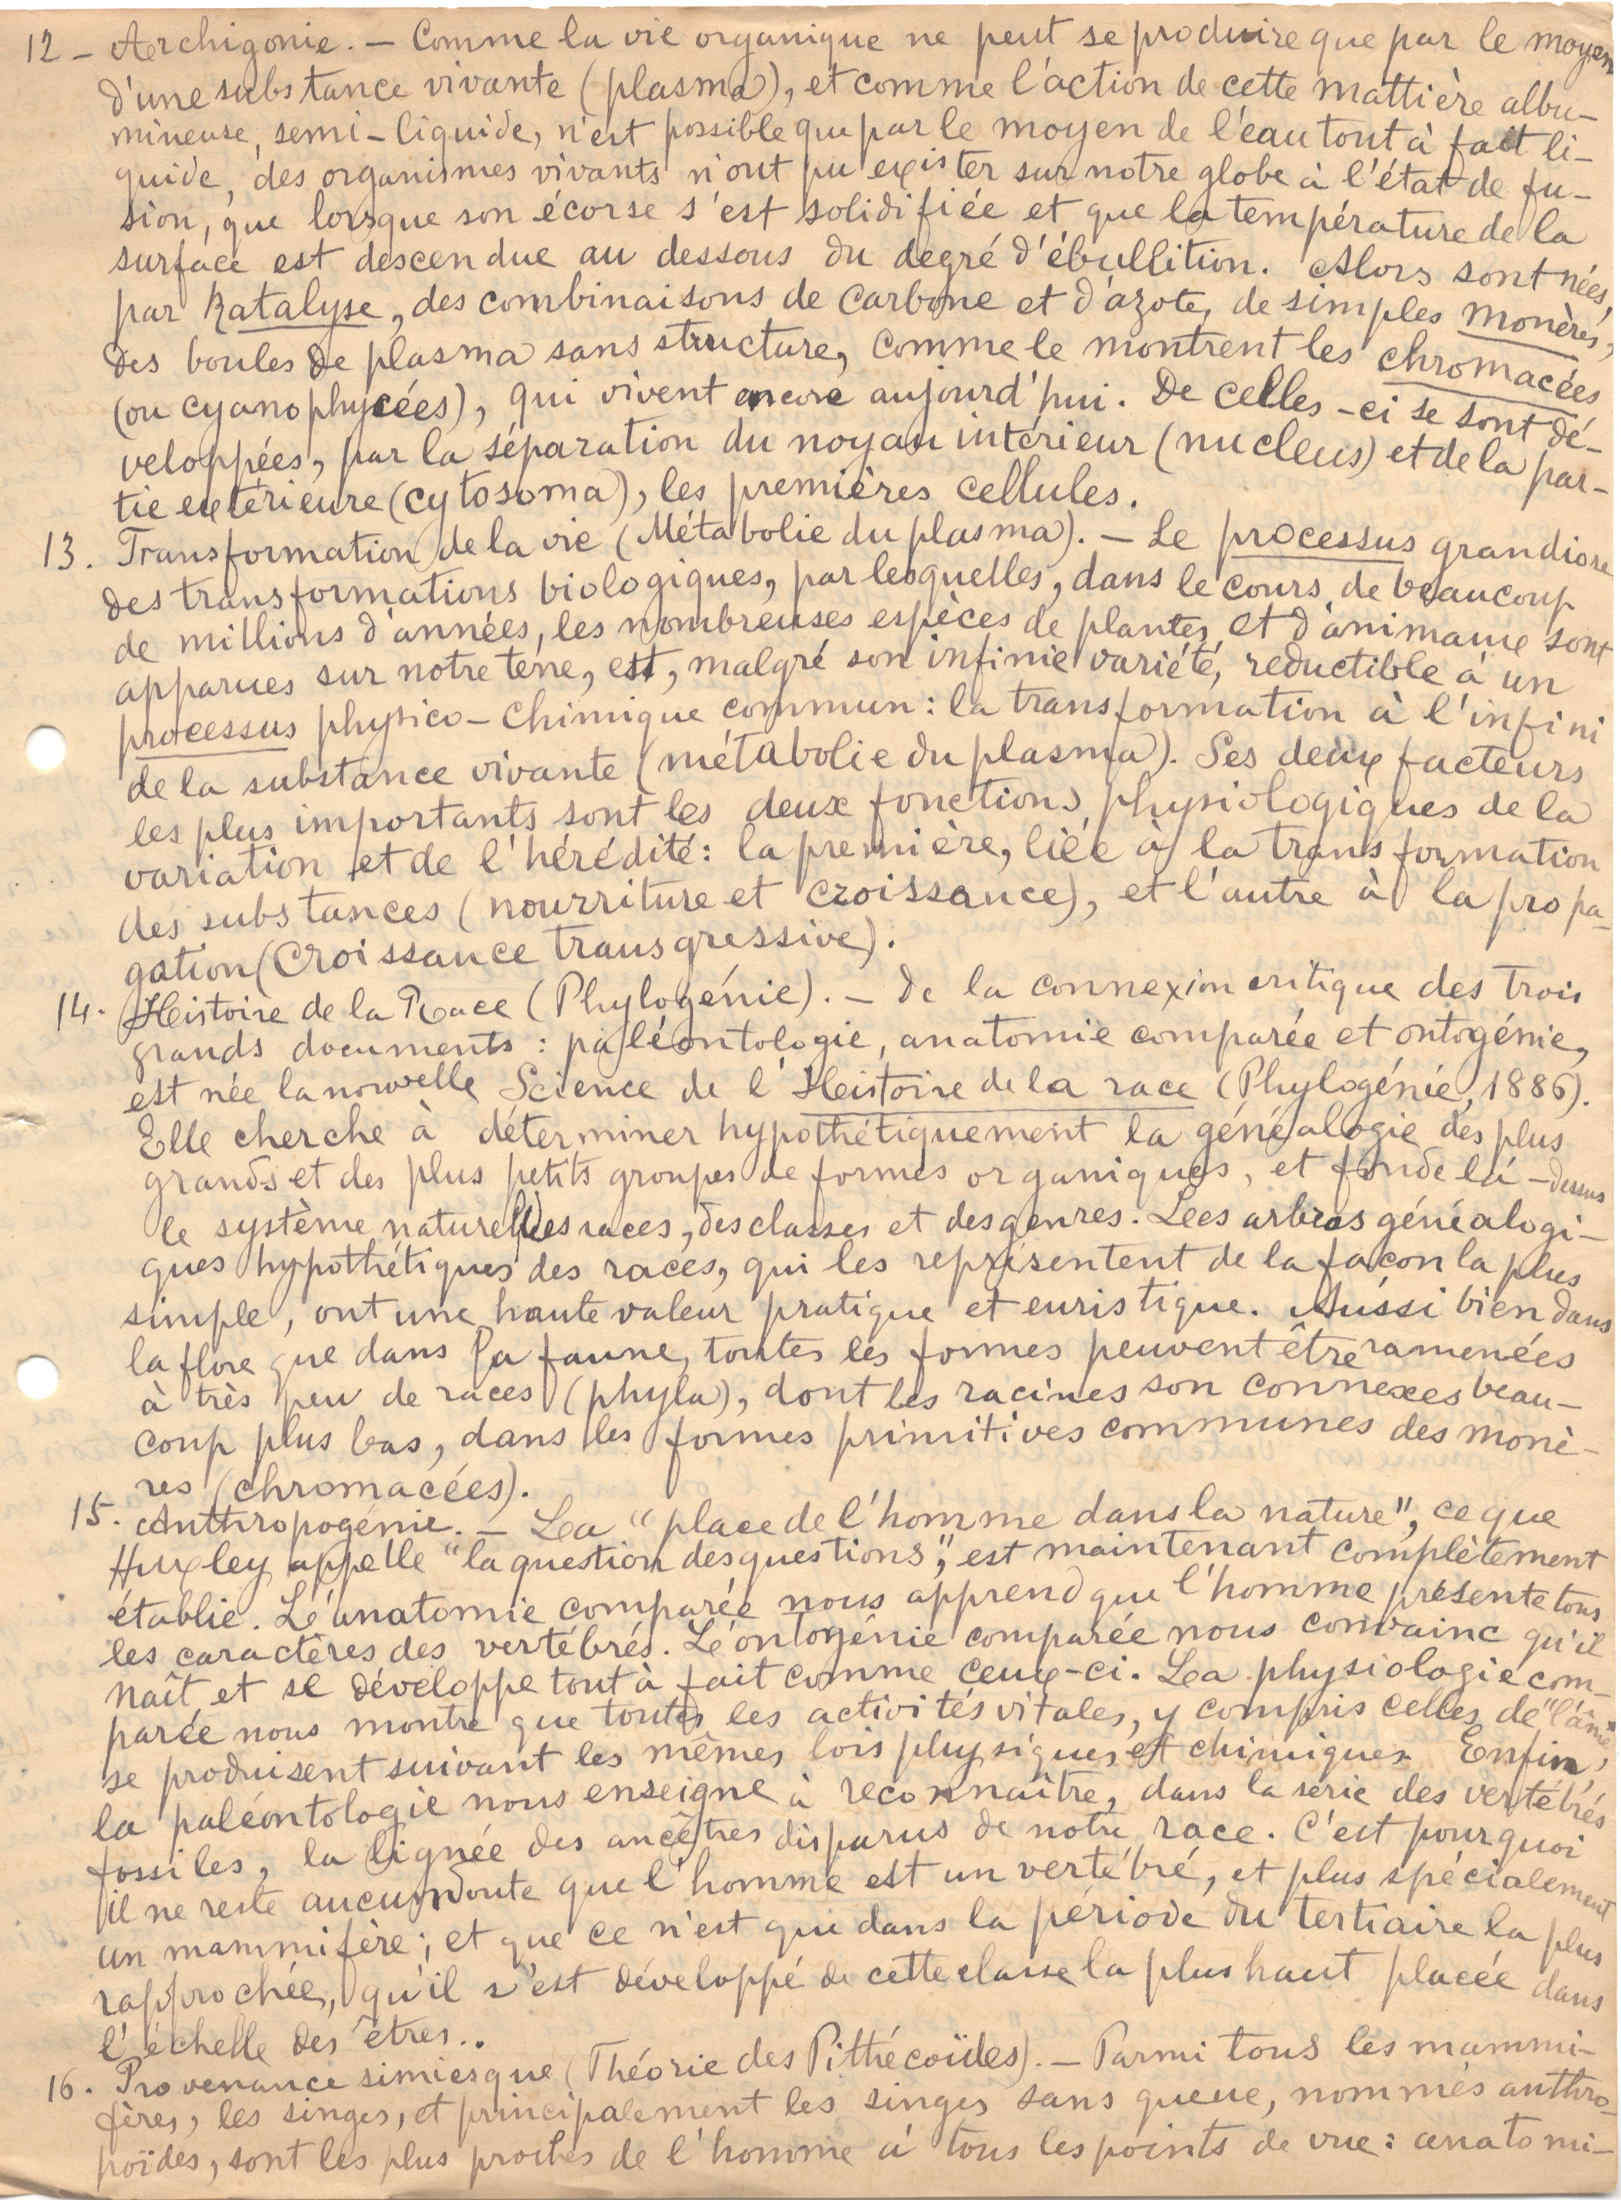 12 - Archigonie. — Comme la vie organique ne peut se produire que par le moyen
d'une substance vivante (plasma), et comme l'action de cette mattière albu-
mineuse, semi-liquide, n'est possible que par le moyen de l'eau tout à fait li-
quide, des organismes vivants n'ont pu exister sur notre globe à l'état de fu-
sion, que lorsque son écorse s'est solidifiée et que la température de la
surface est descendue au dessous du degré d'ébullition. Alors sont nées,
par Katalyse, des combinaisons de carbone et d'azote, de simples monères,
des boules de plasma sans structure, comme le montrent les chromacées
(ou cyanophycées), qui vivent encore aujourd'hui. De celles-ci se sont dé-
veloppées, par la séparation du noyau intérieur (nucleus) et de la par-
tie extérieure (cytosoma), les premières cellules.
13. Transformation de la vie (Métabolie du plasma). — Le processus grandiose
des transformations biologiques, par lesquelles, dans le cours de beaucoup
de millions d'années, les nombreuses espèces de plantes et d'animaux sont
apparues sur notre terre, est, malgré son infinie variété, reductible à un
processus physico-chimique commun: la transformation à l'infini
de la substance vivante (métabolie du plasma). Ses deux facteurs
les plus importants sont les deux fonctions physiologiques de la
variation et de l'hérédité: la première, liée à la transformation
des substances (nourriture et croissance), et l'autre à la propa-
gation (croissance transgressive).
14. Histoire de la Race (Phylogénie). — de la connexion critique des trois
grands documents: paléontologie, anatomie comparée et ontogénie,
est née la nouvelle Science de l'Histoire de la race (Phylogénie, 1886).
Elle cherche à déterminer hypothétiquement la généalogie des plus
grands et des plus petits groupes de formes organiques, et fonde là-dessus
le système naturel des races, des classes et des genres. Les arbres généalogi-
ques hypothétiques des races, qui les représentent de la façon la plus
simple, ont une haute valeur pratique et euristique. Aussi bien dans
la flore que dans la faune, toutes les formes peuvent être ramenées
à très peu de races (phyla), dont les racines son connexes beau-
coup plus bas, dans les formes primitives communes des monè-
res (chromacées).
15. Anthropogénie. — La "place de l'homme dans la nature", ce que
Huxley appelle "la question des questions", est maintenant complètement
établie. L'anatomie comparée nous apprend que l'homme présente tous
les caractères des vertébrés. L'ontogénie comparée nous convainc qu'il
naît et se développe tout à fait comme ceux-ci. La physiologie com-
parée nous montre que toutes les activités vitales, y compris celles de "l'âme",
se produisent suivant les mêmes lois physiques et chimiques. Enfin,
la paléontologie nous enseigne à reconnaître, dans la série des vertébrés
fossiles, la lignée des ancêtres disparus de notre race. C'est pourquoi
il ne reste aucun doute que l'homme est un vertébré, et plus spécialement
un mammifère; et que ce n'est que dans la période du tertiaire la plus
rapprochée, qu'il s'est développé de cette classe la plus haut placée dans
l'échelle des êtres..
16. Provenance simiesque (Théorie des Pithécoïdes). — Parmi tous les mammi-
fères, les singes, et principalement les singes sans queue, nommés anthro-
poïdes, sont les plus proches de l'homme à tous les points de vue: anatomi-